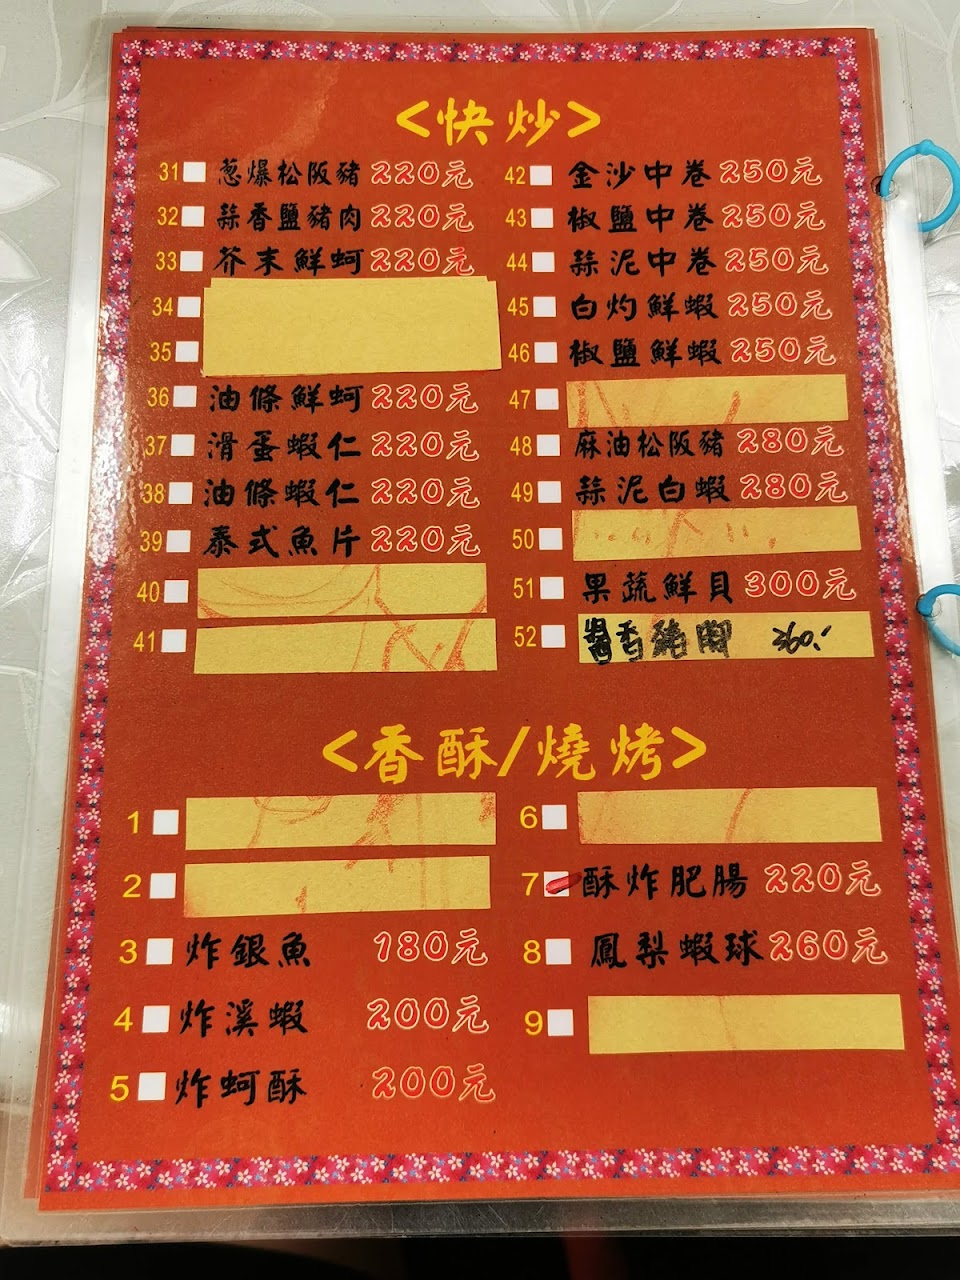 <快炒>
31 蔥爆松阪豬 220元
32 蒜香鹽豬肉 220元
33 芥末鮮蚵 220元
34
35
36 油條鮮蚵 220元
37 滑蛋蝦仁 220元
38 油條蝦仁 220元
39 泰式魚片 220元
40
41
42 金沙中卷 250元
43 椒鹽中卷 250元
44 蒜泥中卷 250元
45 白灼鮮蝦 250元
46 椒鹽鮮蝦 250元
47
48 麻油松阪豬 280元
49 蒜泥白蝦 280元
50
51 果蔬鮮貝 300元
52 醬香豬腳 360.-
<香酥/燒烤>
1
2
3 炸銀魚 180元
4 炸溪蝦 200元
5 炸蚵酥 200元
6
7 酥炸肥腸 220元
8 鳳梨蝦球 260元
9